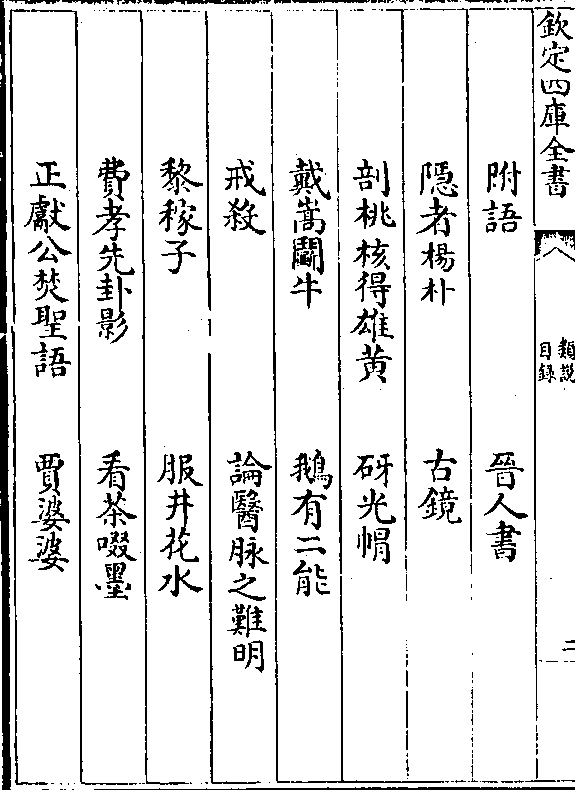 欽定四庫全書
類說
目録
二
附語　晉人書
隱者楊朴　古鏡
剖桃核得雄黄　砑光帽
戴嵩鬬牛　鵝有二能
戒殺　論醫脉之難明
黎𥡴子　服井花水
費孝先卦影　看茶啜墨
正獻公焚聖語　賈婆婆